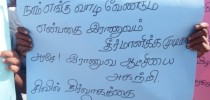 நாம் எங்கு வாழ வேண்டும்
என்பதை இராணுவம்
தீர்மானிக்க முடியாது
அரசே! இராணுவ ஆட்சியை
அகற்றி
சிவில் நிர்வாகத்தை